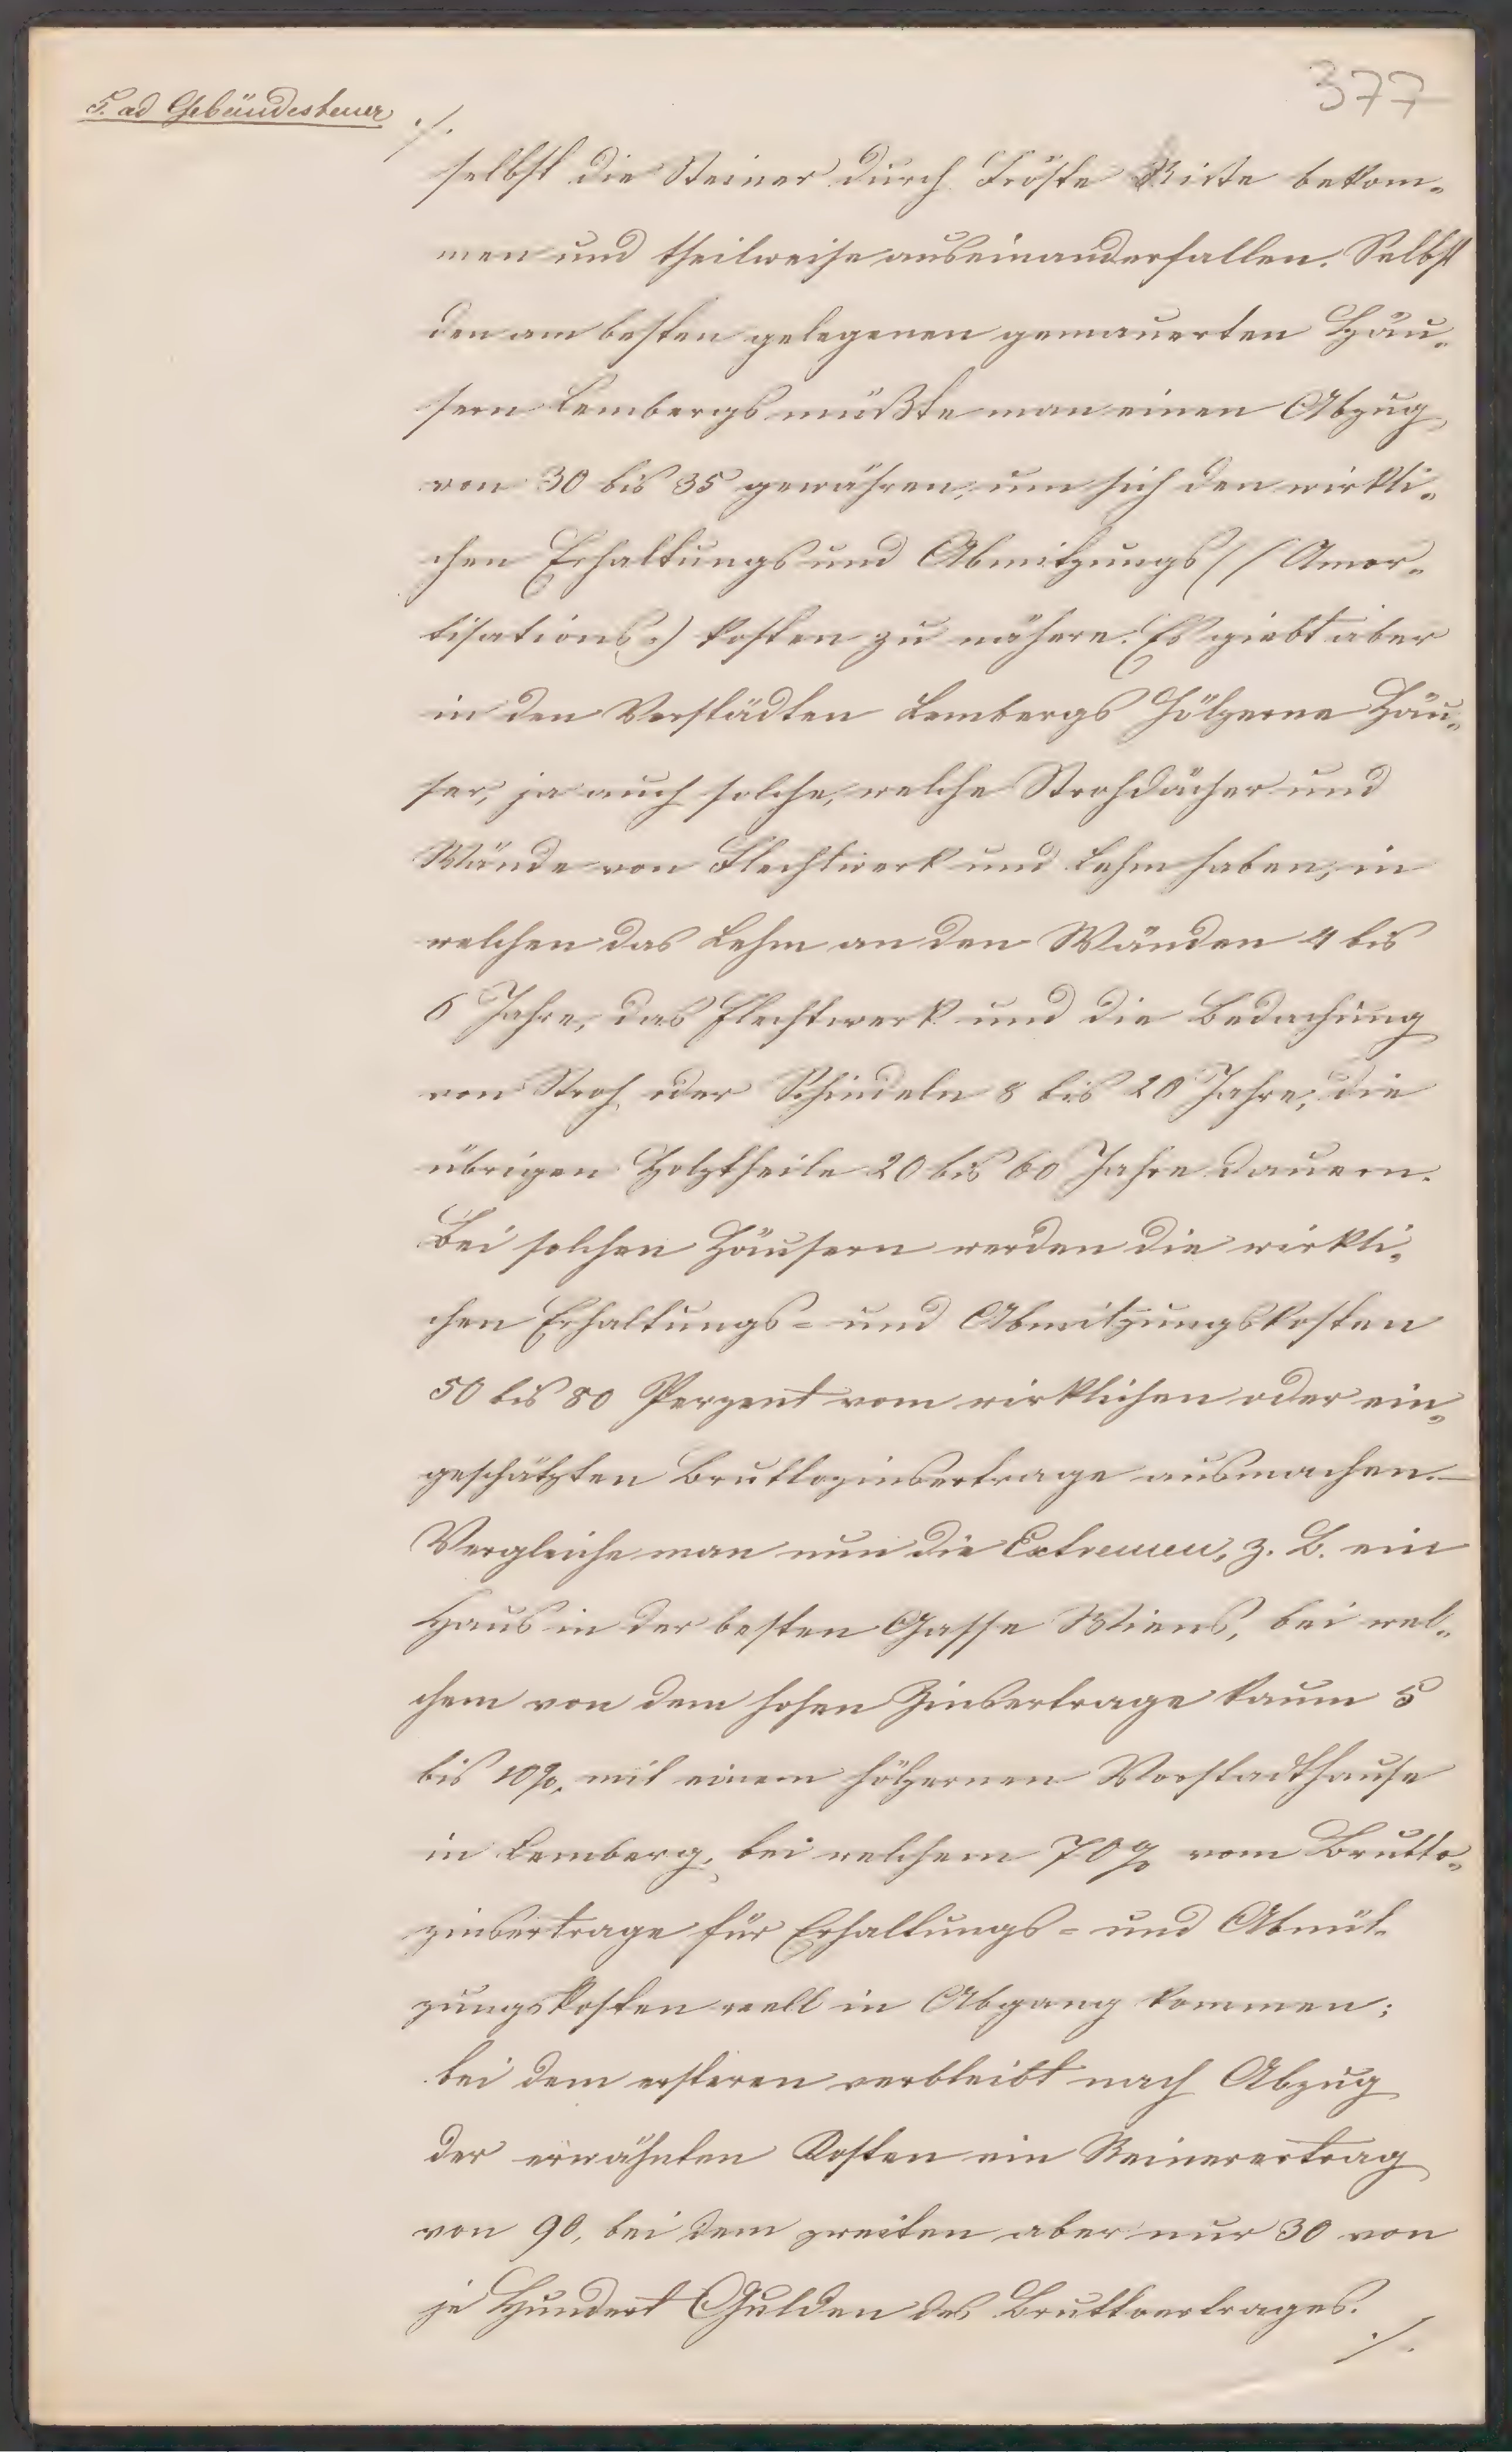 377
5. ad Gebäudesteuer
./.
selbst die Steiner durch Fröste Riste bekom-
men und theilweise auseinanderfallen. Selbst
den am besten gelegenen gemauerten Häu-
sern Lembergs müßte man einen Abzug
von 30 bis 35 gewähren, um sich den wirkli-
chen Erhaltungs und Abnützungs (/ Amor-
tisations:) kosten zu nähern. Es giebt aber
in den Vorstädten Lembergs hölzerne Häu-
ser, ja auch solche, welche Strohdächer und
Wände von Flechtwerk und Lehm haben, in
welchen das Lehm an den Wänden 4 bis
6 Jahre, das Flechtwerk und die Bedachung
von Stroh oder Schindeln 8 bis 20 Jahre, die
übrigen Holztheile 20 bis 60 Jahre dauern.
Bei solchen Häusern werden die wirkli-
chen Erhaltungs- und Abnützungskosten
50 bis 80 Perzent vom wirklichen oder ein-
geschätzten Bruttozinsertrage ausmachen.–
Vergleiche man nun die Extremen, z. B. ein
Haus in der besten Gasse Wiens, bei wel-
chem von dem hohen Zinsertrage kaum 5
bis 10%, mit einem hölzernen Vorstadthause
in Lemberg, bei welchem 70% vom Brutto-
zinsertrage für Erhaltungs- und Abnüt-
zungskosten well in Abgang kommen;
bei dem ersteren verbleibt nach Abzug
der erwähnten Kosten ein Reinerertrag
von 90, bei dem zweiten aber nur 30 von
je Hundert Gulden des Bruttoertrages.
./.